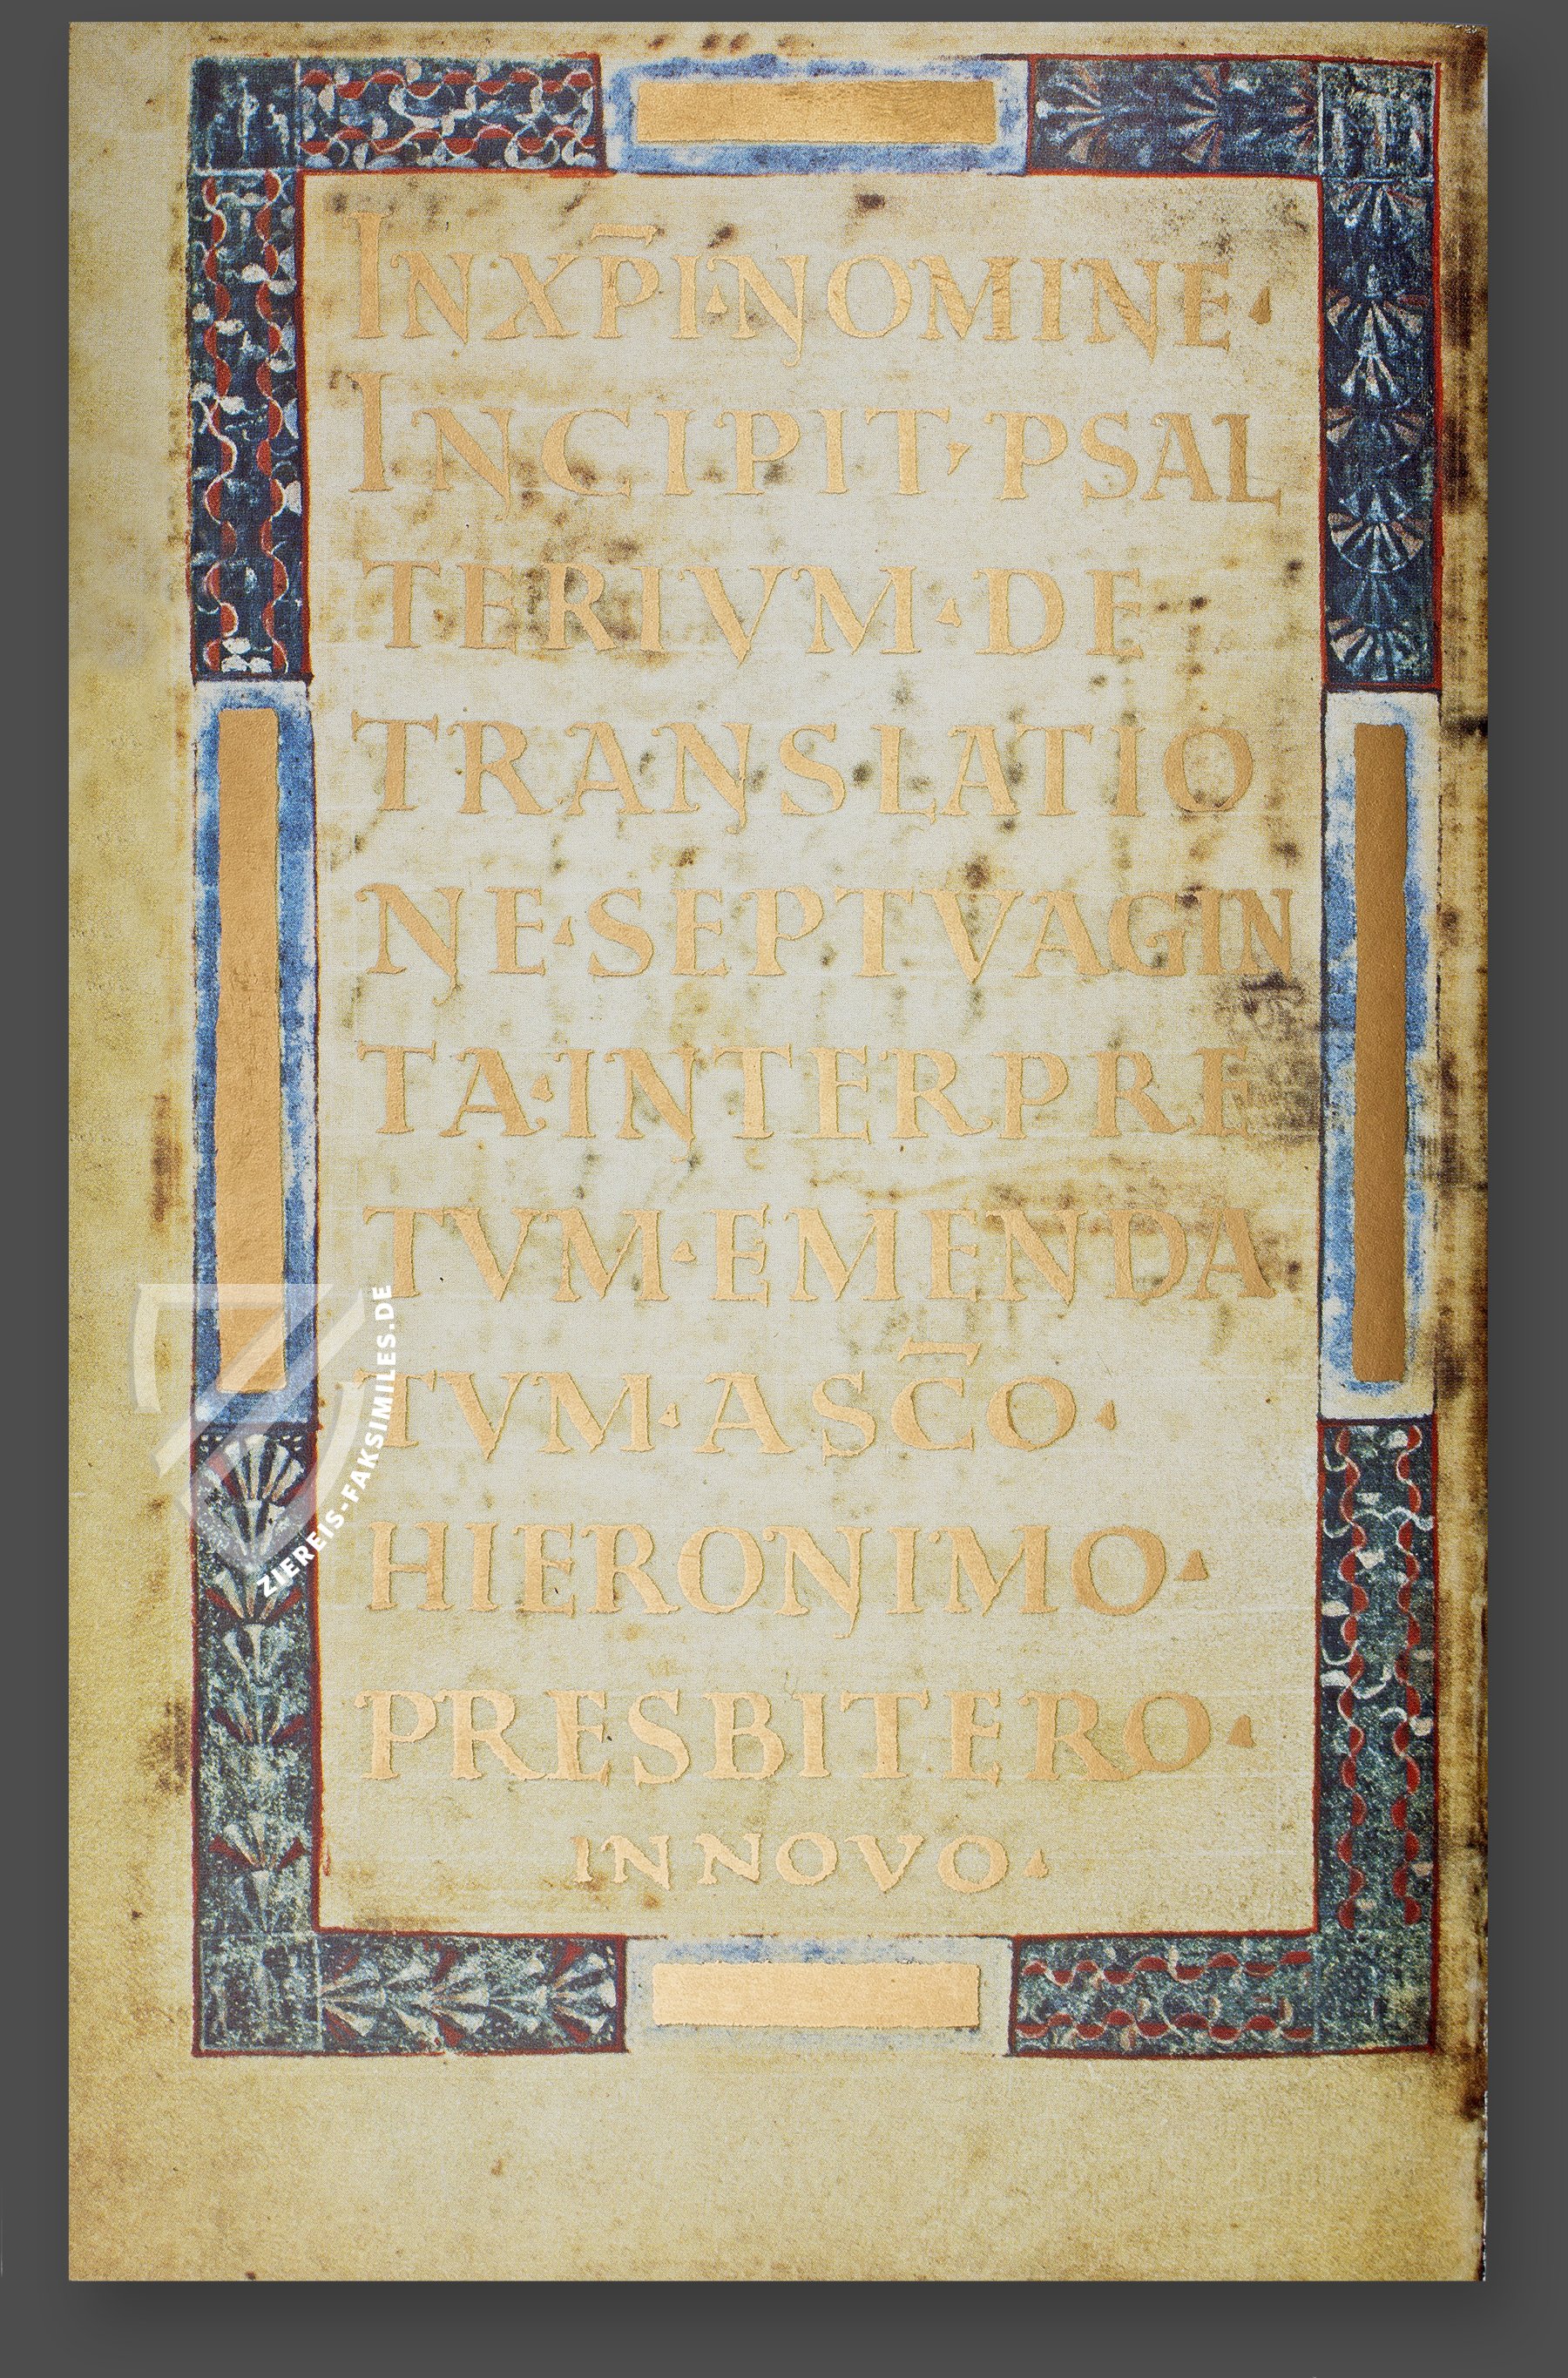 IN XP̄I·NOMINE·
INCIPIT·PSAL
TERIVM·DE
TRANSLATIO
NE·SEPTVAGIN
TA·INTERPRE
TVM·EMENDA
TVM·A SC̄O·
HIERONIMO·
PRESBITERO·
IN NOVO·
ZIEREIS-FAKSIMILES.DE